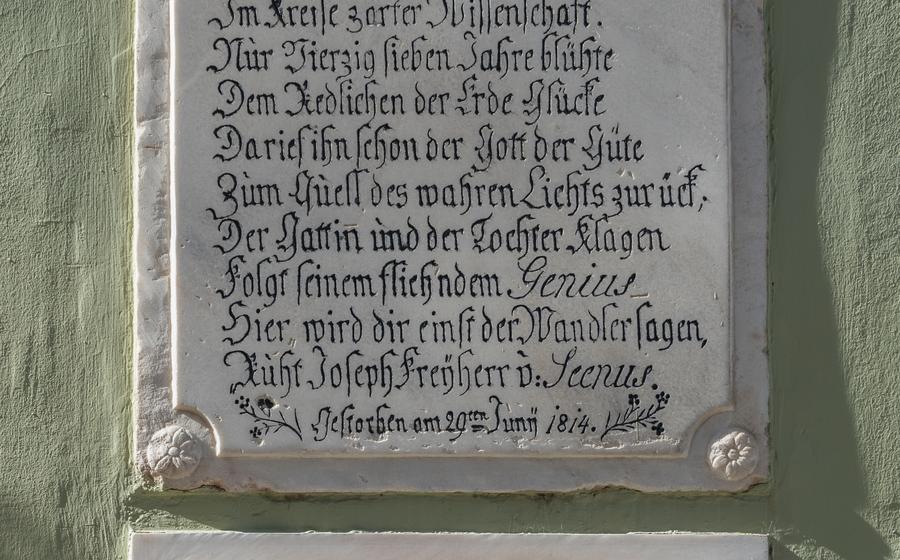 Im Kreise zarter Wissenschaft.
Nur Vierzig sieben Jahre blühte
Dem Redlichen der Erde Glücke
Da rief ihn schon der Gott der Güte
Zum Quell des wahren Lichts zurück,
Der Gattin und der Tochter Klagen
Folgt seinem fliehndem Genius
Hier, wird dir einst der Wandler sagen,
Ruht Joseph Freÿherr v: Seenus.
Gestorben am 29ten Junÿ 1814.